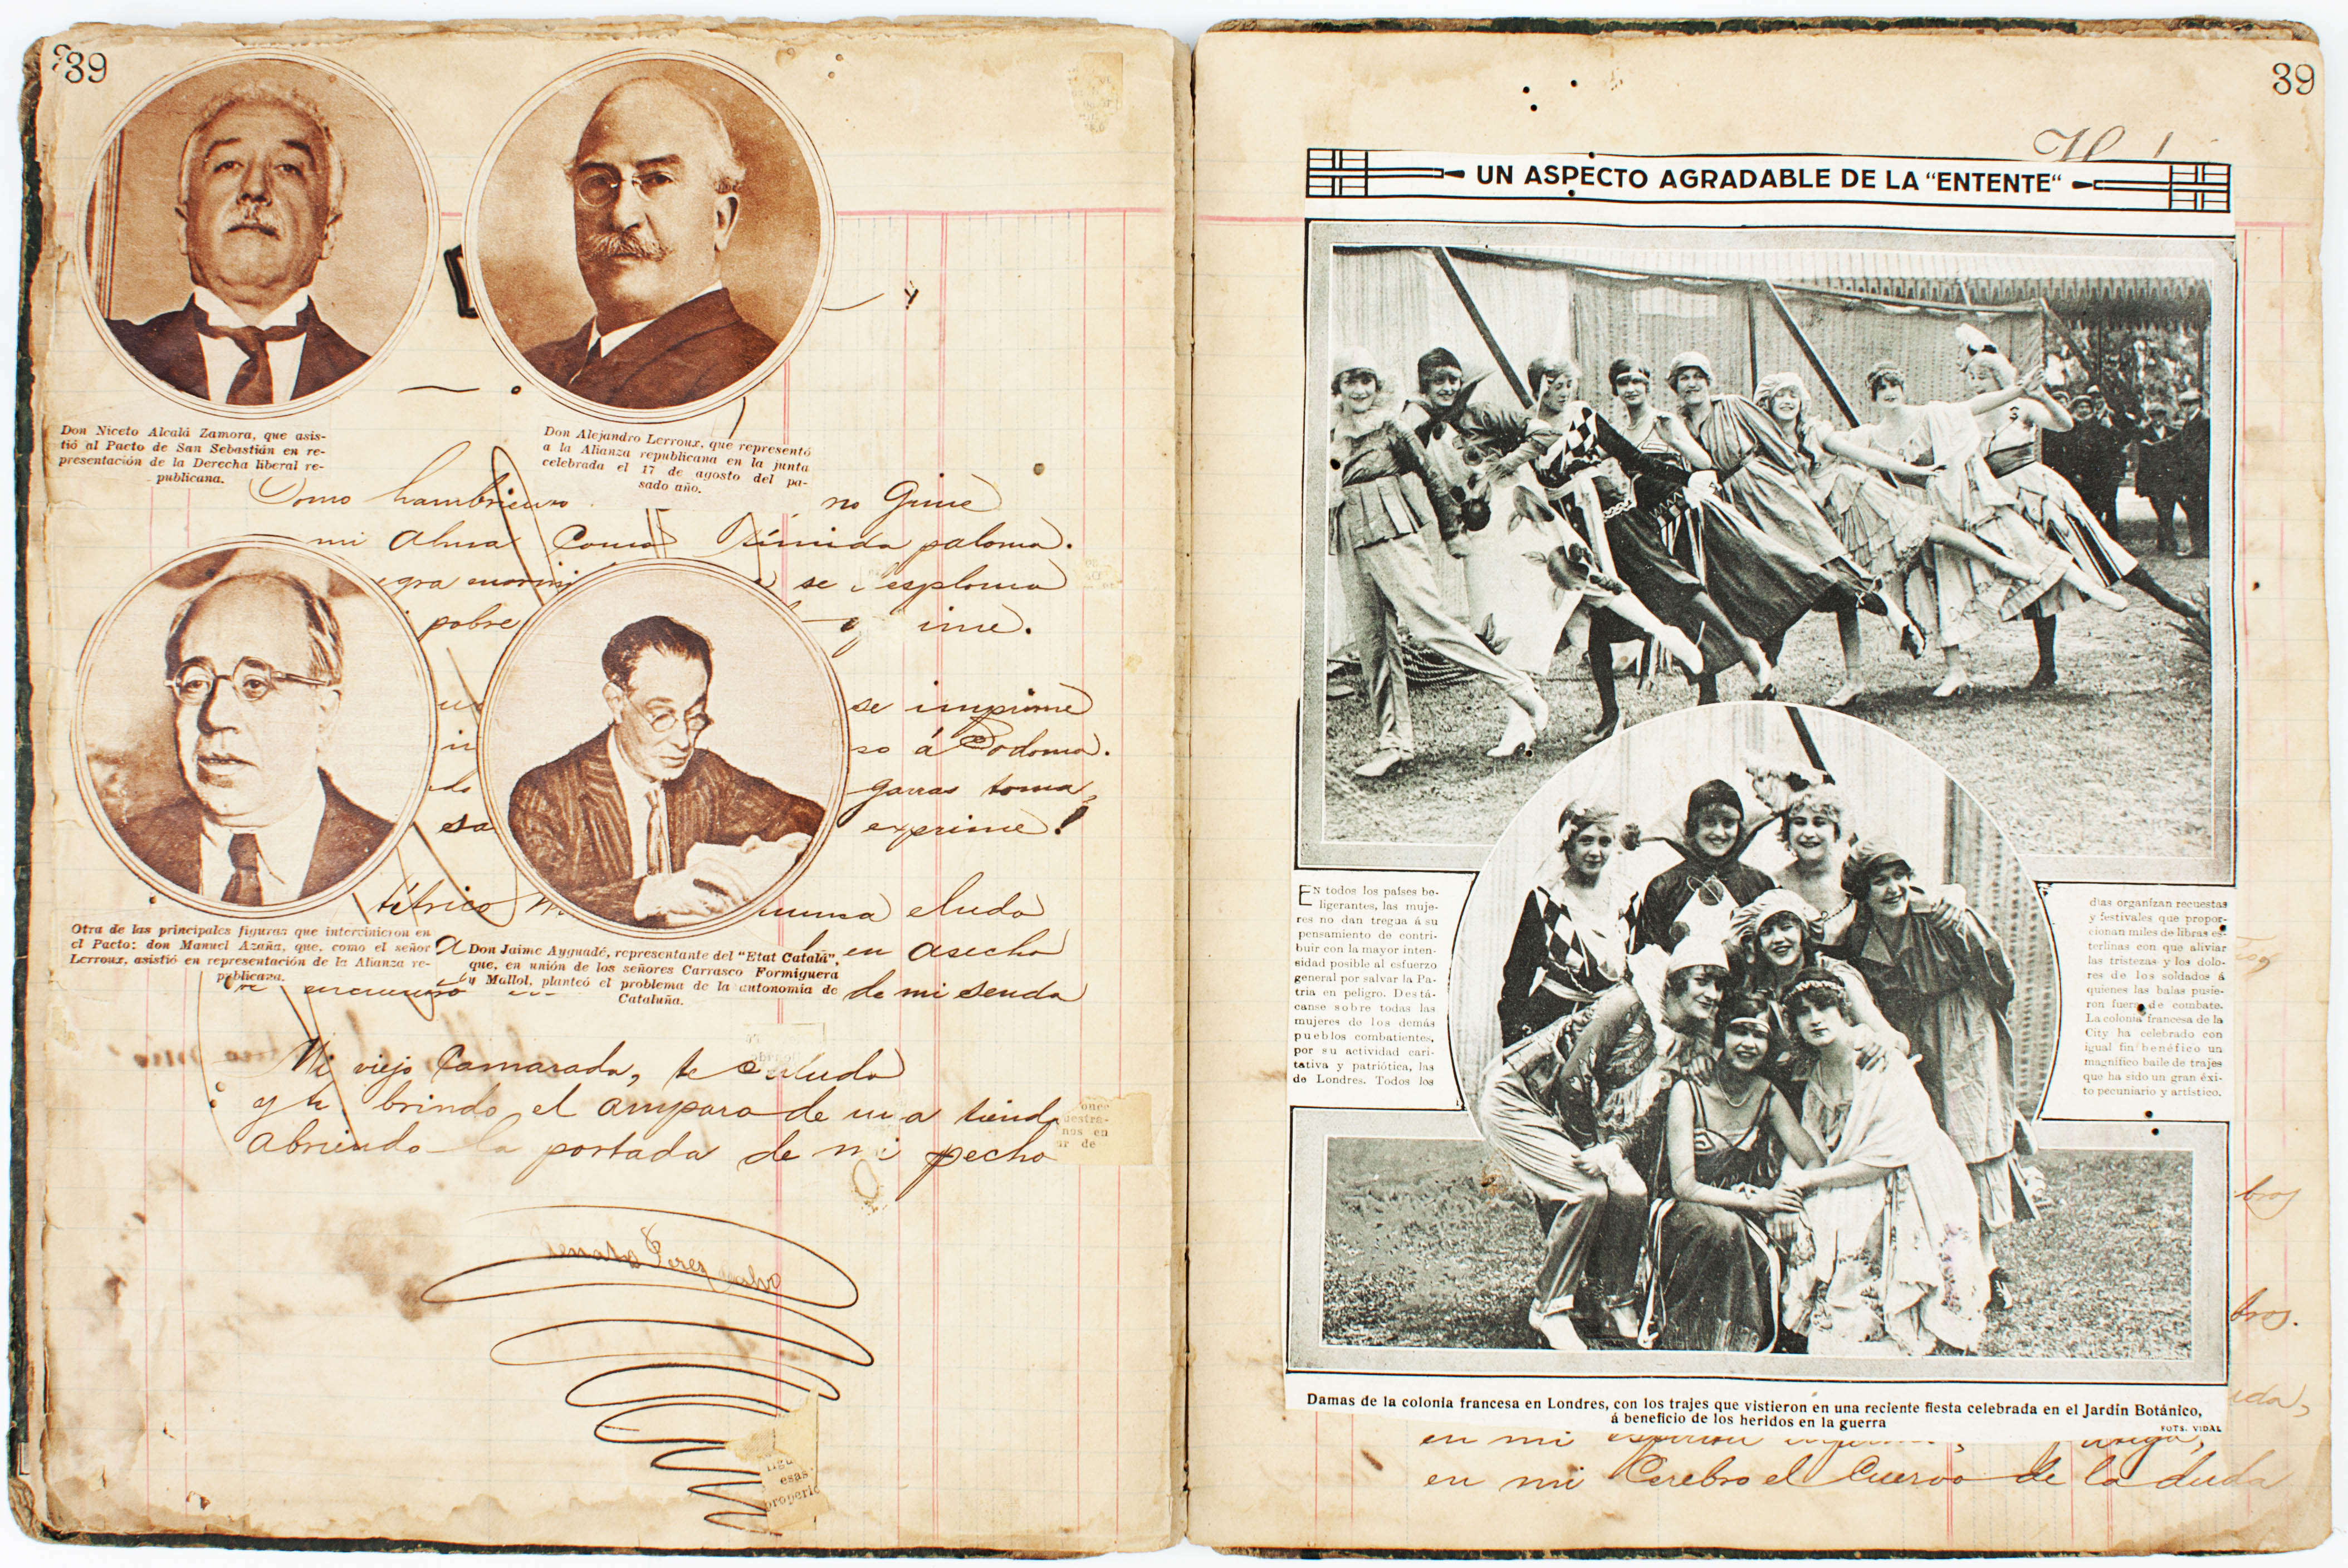 39
Don Niceto Alcalá Zamora, que asis-
tió al Pacto de San Sebastián en re-
presentación de la Derecha liberal re-
publicana.
Don Alejandro Lerroux, que representó
a la Alianza republicana en la junta
celebrada el 17 de agosto del pa-
sado año.
Como hambriento no gime
mi alma como tímida paloma.
se desploma
pobre
se imprime
á Sodoma.
garras toma,
exprime!
Otra de las principales figuras que intervinieron en
el Pacto: don Manuel Azaña, que, como el señor
Lerroux, asistió en representación de la Alianza re-
publicana.
Don Jaime Ayguadé, representante del "Etat Català",
que, en unión de los señores Carrasco Formiguera
y Mallol, planteó el problema de la autonomía de
Cataluña.
tétrico eluda
en asecho
de mi senda
Mi viejo Camarada, te saludo
y te brindo el amparo de una tienda
abriendo la portada de mi pecho
Renato Perez
esas
39
UN ASPECTO AGRADABLE DE LA "ENTENTE"
EN todos los países be-
ligerantes, las muje-
res no dan tregua á su
pensamiento de contri-
buir con la mayor inten-
sidad posible al esfuerzo
general por salvar la Pa-
tria en peligro. Destá-
canse sobre todas las
mujeres de los demás
pueblos combatientes,
por su actividad cari-
tativa y patriótica, las
de Londres. Todos los
días organizan recuestas
y festivales que propor-
cionan miles de libras es-
terlinas con que aliviar
las tristezas y los dolo-
res de los soldados á
quienes las balas pusie-
ron fuera de combate.
La colonia francesa de la
City ha celebrado con
igual fin benéfico un
magnífico baile de trajes
que ha sido un gran éxi-
to pecuniario y artístico.
Damas de la colonia francesa en Londres, con los trajes que vistieron en una reciente fiesta celebrada en el Jardín Botánico,
á beneficio de los heridos en la guerra
FOTS. VIDAL
en mi
en mi Cerebro el Cuervo de la duda